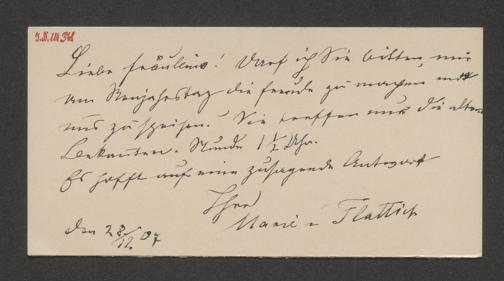 I.N. 111.548
Liebe Fräulein! Darf ich Sie bitten mir
am Neujahrstag die Freude zu machen mit
uns zu speisen. Sie treffen nur die alten
Bekannten. Stunde 1 ½ Uhr.
Es hofft auf eine zusagende Antwort
Ihre
Marie v Flattich
den 28/12. 07